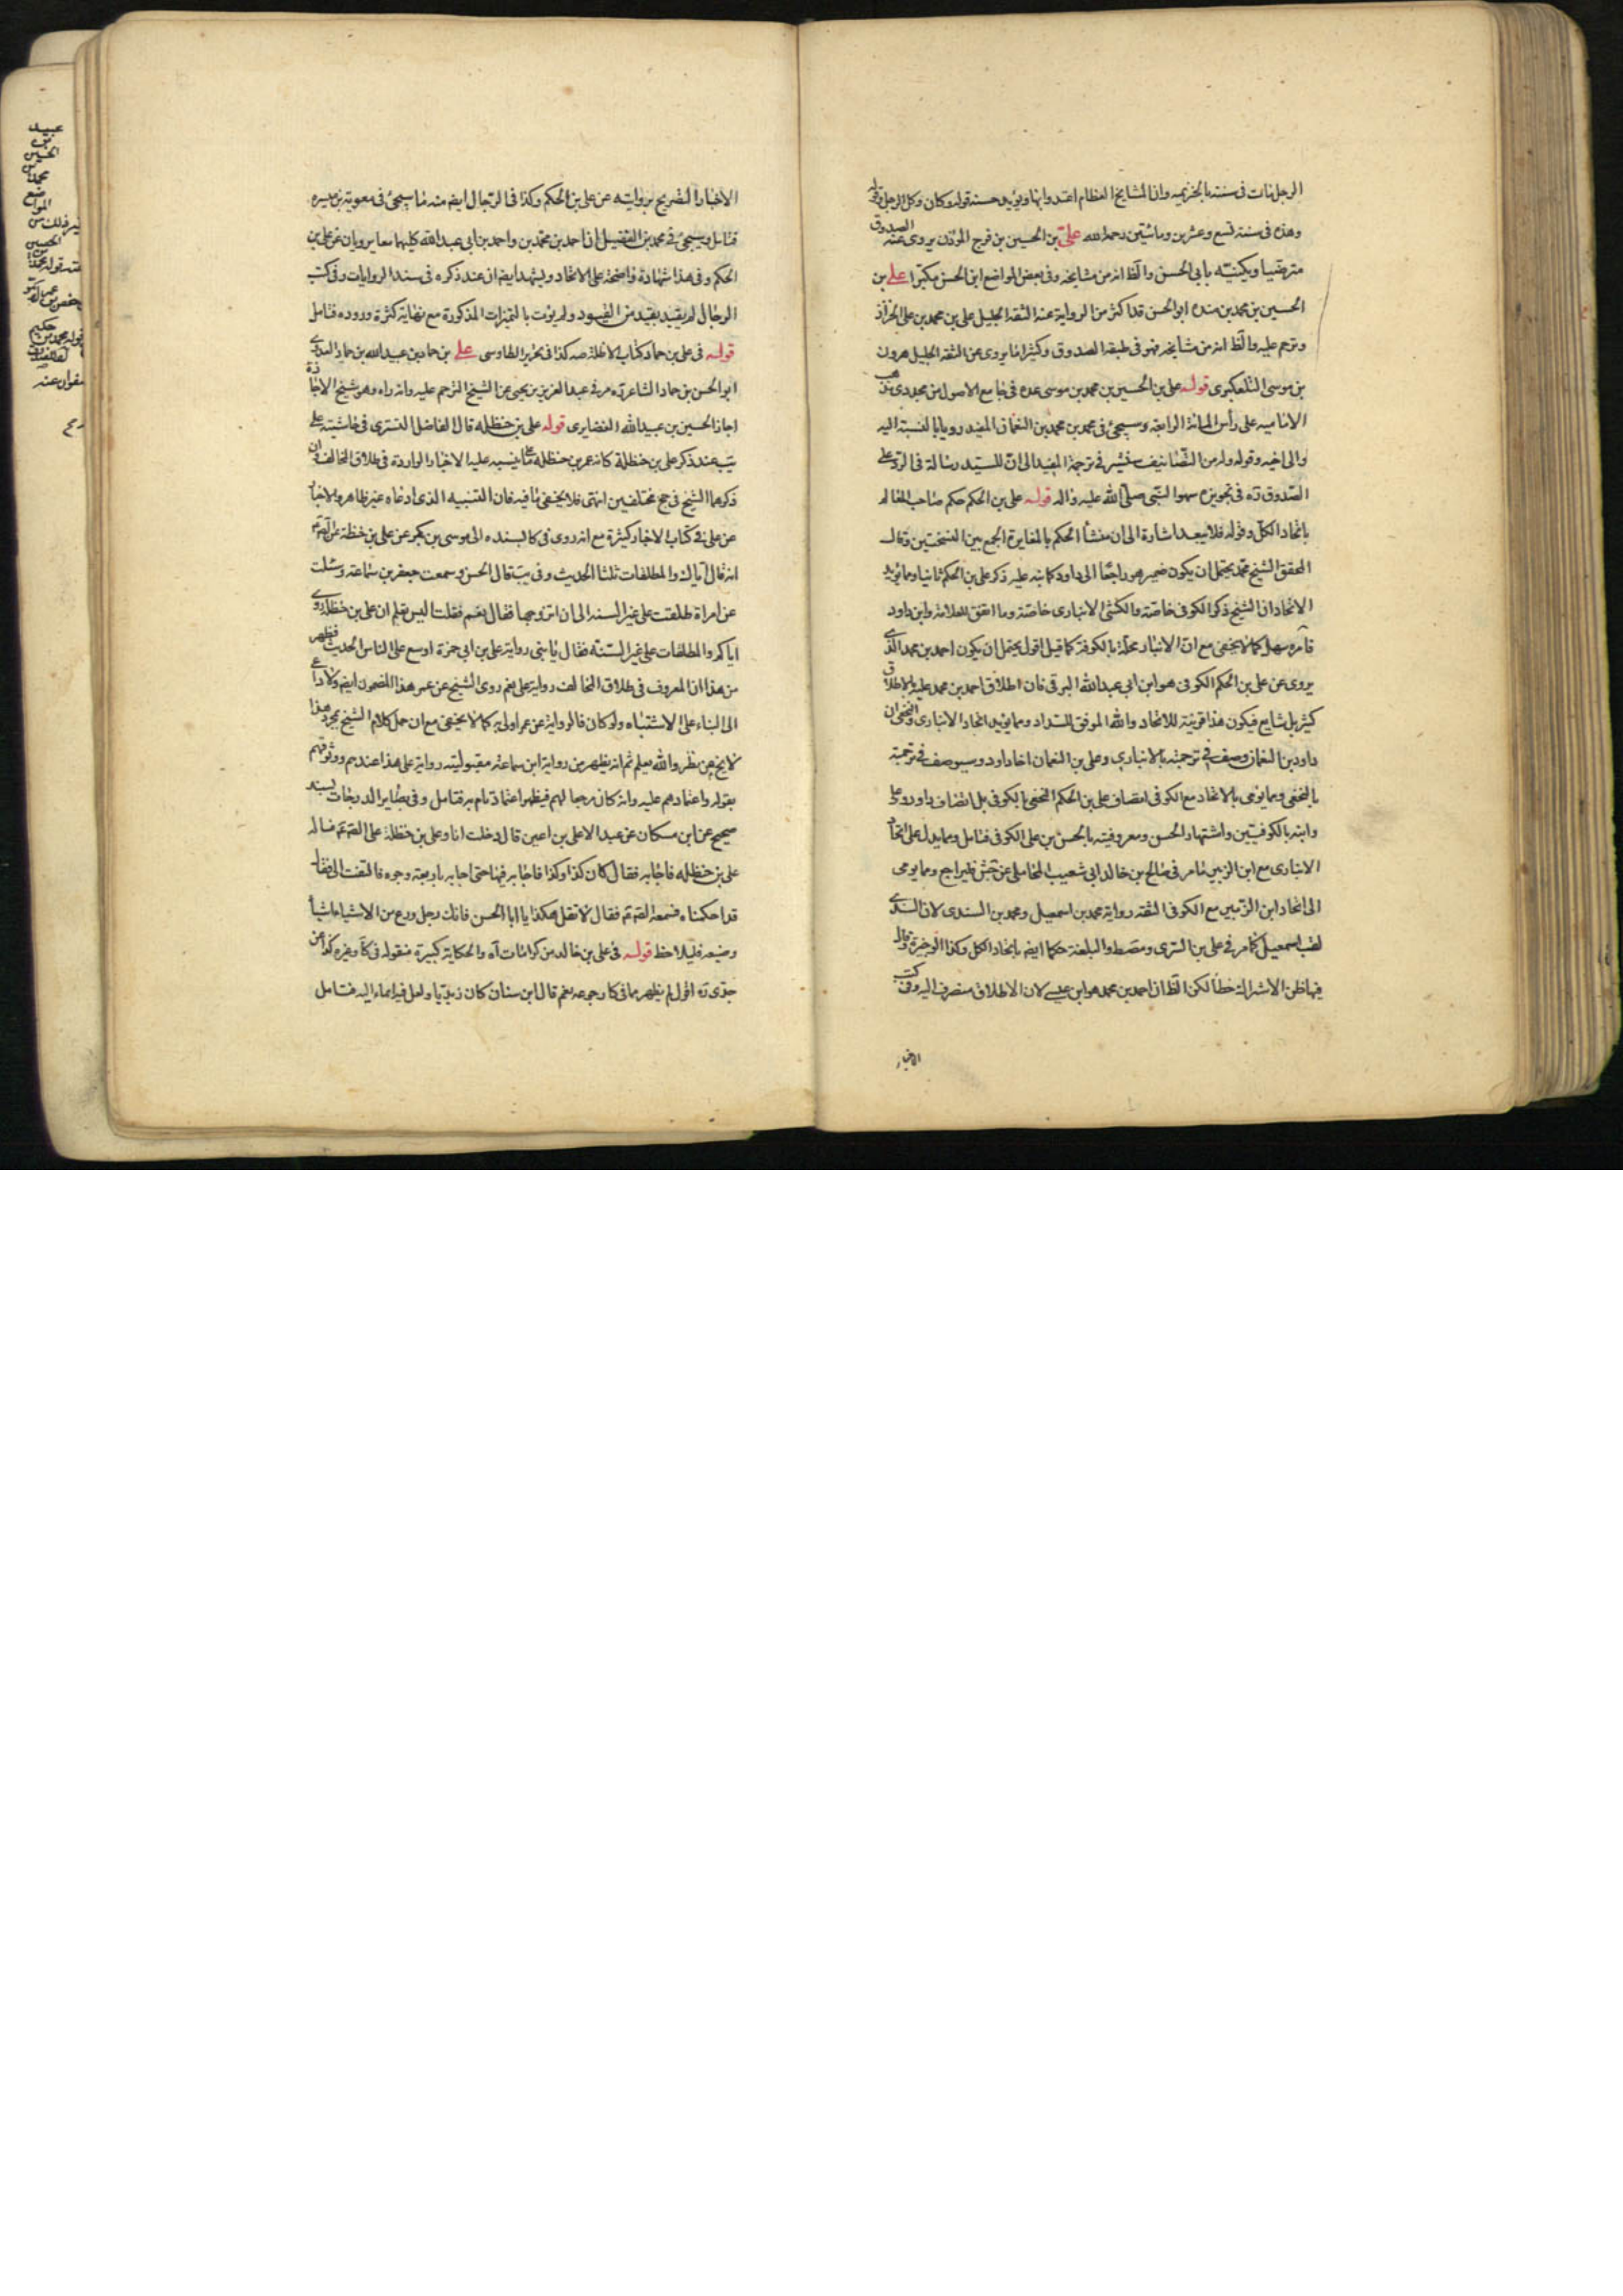 الرجل مات في سنته بالخزيميه وان المشايخ العظام اعتدوا بها ويؤيد حسنه قوله وكان وكل الرجل وقوله
وهذه في سنة تسع وعشرين ومائتين رحمه الله علي بن الحسين بن فرج المؤذن يروى عنه الصدوق
مترضيا ويكنيه بابي الحسن والظ انه من مشايخه وفي بعض المواضع ابن الحسن مكبرا علي بن
الحسين بن محمد بن منده ابو الحسن قد اكثر من الرواية عنه الثقه الجليل علي بن محمد بن علي الخزاز
وترحم عليه والظ انه من مشايخه فهو في طبقة الصدوق وكثيرا ما يروى عن الثقه الجليل هرون
بن موسى التلعكبرى قوله علي بن الحسين بن محمد بن موسى عده في جامع الاصول من مجددى مذهب
الاماميه على رأس المائة الرابعة وسيجئ في محمد بن محمد بن النعمان المفيد رويا بالنسبة اليه
والى اخيه وقوله وله من التصانيف في ترجمة المفيد الى ان للسيد رسالة في الرد على
الصدوق ره في تجويزه سهو النبي صلى الله عليه واله قوله علي بن الحكم حكم صاحب المعالم
باتحاد الكل وقوله فلا يبعد اشارة الى ان منشأ الحكم بالمغايرة الجمع بين النسختين وقال
المحقق الشيخ محمد يحتمل ان يكون ضمير هو راجعا الى داود كما نبه عليه ذكر علي بن الحكم ثانيا ومما يؤيد
الاتحاد ان الشيخ ذكر الكوفى خاصة والكشى الانبارى خاصة وما اتفق للعلامة وابن داود
فامره سهل كما لا يخفى مع ان الانبار محلة بالكوفة كما قيل اقول يحتمل ان يكون احمد بن محمد الذى
يروى عن علي بن الحكم الكوفى هو ابن ابي عبد الله البرقى فان اطلاق احمد بن محمد عليه بالاطلاق
كثير بل شايع فيكون هذا قرينة للاتحاد والله الموفق للسداد ومما يؤيد اتحاد الانبارى والنخعى ان
داود بن النعمان وصف في ترجمته بالانبارى وعلي بن النعمان اخا داود وسيوصف في ترجمته
بالنخعى ومما يومى بالاتحاد مع الكوفى اتصاف علي بن الحكم النخعى بالكوفى بل اتصاف داود وعلي
وابنه بالكوفيتين واشتهاد الحسن ومعروفيته بالحسن بن علي الكوفى فتامل ومما يدل على اتحاد
الانبارى مع ابن الزبير ما مر في صالح بن خالد ابي شعيب المحاملى عن جش فليراجع ومما يومى
الى اتحاد ابن الزبير مع الكوفى الثقة رواية محمد بن اسمعيل ومحمد بن السندى لان السندى
لقب اسمعيل كما مر في علي بن السرى ومصط والبلغة حكما ايضم باتحاد الكل وكذا الوجيزة وقال
فيها ظن الاشتراك خطأ لكن الظ ان احمد بن محمد هو ابن عيسى لان الاطلاق منصرف اليه وفي كتب
الاخبار
الاخبار التصريح بروايته عن علي بن الحكم وكذا في الرجال ايضم منه ما سيجئ في معوية بن ميسره
فتامل وسيجئ في محمد بن الفضيل ان احمد بن محمد بن واحمد بن ابي عبد الله كليهما معا يرويان عن علي بن
الحكم وفي هذا شهادة واضحة على الاتحاد ويشهد ايضم ان عند ذكره في سند الروايات وفي كتب
الرجال لم يقيد بقيد من القيود ولم يؤت بالتميزات المذكورة مع نهاية كثرة وروده فتامل
قوله في علي بن حماد كتاب الاظلة صه كذا في تحرير الطاوسى علي بن حماد بن عبيد الله بن حماد العدوى
ابو الحسن بن حماد الشاعر ره مر في عبد العزيز بن يحيى عن الشيخ الترحم عليه وانه راه وهو شيخ الاجازة
اجاز الحسين بن عبيد الله الغضايرى قوله علي بن حنظله قال الفاضل التسترى في حاشيته على
يب عند ذكر علي بن حنظلة كانه عمر بن حنظلة ينسبه عليه الاخبار الواردة في طلاق المخالف وان
ذكرهما الشيخ في جخ مختلفين انتهى فلا يخفى ما فيه فان التنبيه الذى ادعاه غير ظاهر والاخبار
عن علي في كتاب الاخبار كثيرة مع انه روى في كا بسنده الى موسى بن بكر عن علي بن حنظلة عن الصم
انه قال اياك والمطلقات ثلثا الحديث وفي يب قال الحسن وسمعت جعفر بن سماعه وسئلت
عن امراة طلقت على غير السنه الى ان اتزوجها فقال نعم فقلت اليس تعلم ان علي بن حنظلة روى
اياكم والمطلقات على غير السنة فقال يا بنى رواية علي بن ابي حمزة اوسع على الناس الحديث فظهر
من هذا ان المعروف في طلاق المخالف رواية علي نعم روى الشيخ عن عمر هذا المضمون ايضم ولا داعى
الى البناء على الاشتباه ولو كان فالرواية عن عمر اولى به كما لا يخفى مع ان حمل كلام الشيخ بمجرد هذا
لا يخ من نظر والله يعلم ثم انه يظهر من رواية ابن سماعة مقبولية رواية علي هذا عندهم ووثوقهم
بقوله واعتمادهم عليه وانه كان مرجعا لهم فيظهر اعتماد تام به فتامل وفي بصاير الدرجات بسند
صحيح عن ابن مسكان عن عبد الاعلى بن اعين قال دخلت انا وعلي بن حنظلة على الصم فساله
علي بن حنظله فاجابه فقال كان كذا وكذا فاجابه فيها حتى اجابه باربعة وجوه فالتفت الى فقال
قد احكمناه فسمعه الصم فقال لا تقل هكذا يا ابا الحسن فانك رجل ورع من الاشياء اشياء
وضيعه فليلاحظ قوله في علي بن خالد من كرامات اه والحكاية كبيرة منقوله في كا وغيره كذا عن
جدى ره اقول لم يظهر مما في كا رجوعه نعم قال ابن سنان كان زيديا ولعل فيه ايماء اليه فتامل
عبيد
بن
الحسين
محمد بن
المواضع